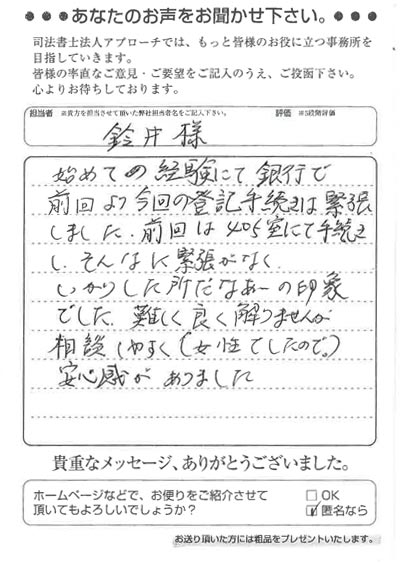 ●●●あなたのお声をお聞かせ下さい。●●●
司法書士法人アプローチでは、もっと皆様のお役に立つ事務所を
目指していきます。
皆様の率直なご意見・ご要望をご記入のうえ、ご投函下さい。
心よりお待ちしております。
担当者 ※貴方を担当させて頂いた弊社担当者名をご記入下さい。 評価 ※5段階評価
鈴井様
始めての経験にて銀行で
前回より今回の登記手続きは緊張
しました。前回は405室にて手続き
し、そんなに緊張がなく
しっかりした所だなあーの印象
でした。難しく良く解りませんが
相談しやすく(女性でしたので。)
安心感がありました
貴重なメッセージ、ありがとうございました。
ホームページなどで、お便りをご紹介させて
頂いてもよろしいでしょうか?
□ OK
☑ 匿名なら
お送り頂いた方には粗品をプレゼントいたします。